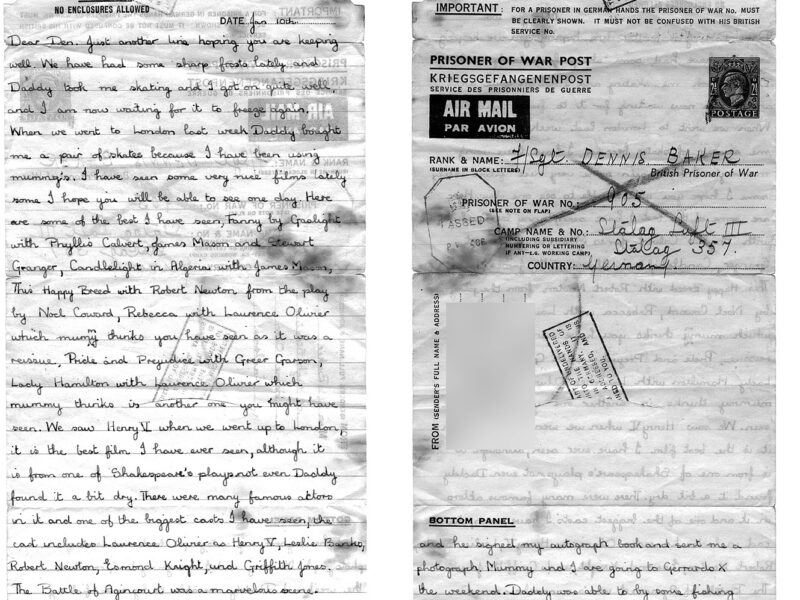 NO ENCLOSURES ALLOWED
DATE Jan 10th.
Dear Den. Just another line hoping you are keeping
well. We have had some sharp frosts lately and
Daddy took me skating and I got on quite well,
and I am now waiting for it to freeze again.
When we went to London last week Daddy bought
me a pair of skates because I have been using
mummy's. I have seen some very nice films lately
some I hope you will be able to see one day. Here
are some of the best I have seen, Fanny by Gaslight
with Phyllis Calvert, James Mason and Stewart
Granger, Candlelight in Algeria with James Mason,
This Happy Breed with Robert Newton from the play
by Noel Coward, Rebecca with Laurence Olivier
which mummy thinks you have seen as it was a
reissue, Pride and Prejudice with Greer Garson,
Lady Hamilton with Laurence Olivier which
mummy thinks is another one you might have
seen. We saw Henry V when we went up to London,
it is the best film I have ever seen, although it
is from one of Shakespeare's plays not even Daddy
found it a bit dry. There were many famous actors
in it and one of the biggest casts I have seen, the
cast includes Laurence Olivier as Henry V, Leslie Banks,
Robert Newton, Esmond Knight, and Griffith Jones.
The Battle of Agincourt was a marvelous scene.
IMPORTANT: FOR A PRISONER IN GERMAN HANDS THE PRISONER OF WAR No. MUST
BE CLEARLY SHOWN. IT MUST NOT BE CONFUSED WITH HIS BRITISH
SERVICE No.
PRISONER OF WAR POST
KRIEGSGEFANGENENPOST
SERVICE DES PRISONNIERS DE GUERRE
AIR MAIL
PAR AVION
POSTAGE
RANK & NAME: F/Sgt. DENNIS BAKER
(SURNAME IN BLOCK LETTERS)
British Prisoner of War
PRISONER OF WAR No.: 905
(SEE NOTE ON FLAP)
PASSED
CAMP NAME & No.: Stalag Luft III
(INCLUDING SUBSIDIARY
NUMBERING OR LETTERING
IF ANY—E.G. WORKING CAMP)
Stalag 357.
COUNTRY: Germany.
FROM (SENDER'S FULL NAME & ADDRESS)
BOTTOM PANEL
and he signed my autograph book and sent me a
photograph. Mummy and I are going to Gerrards X
the weekend. Daddy was able to by some fishing